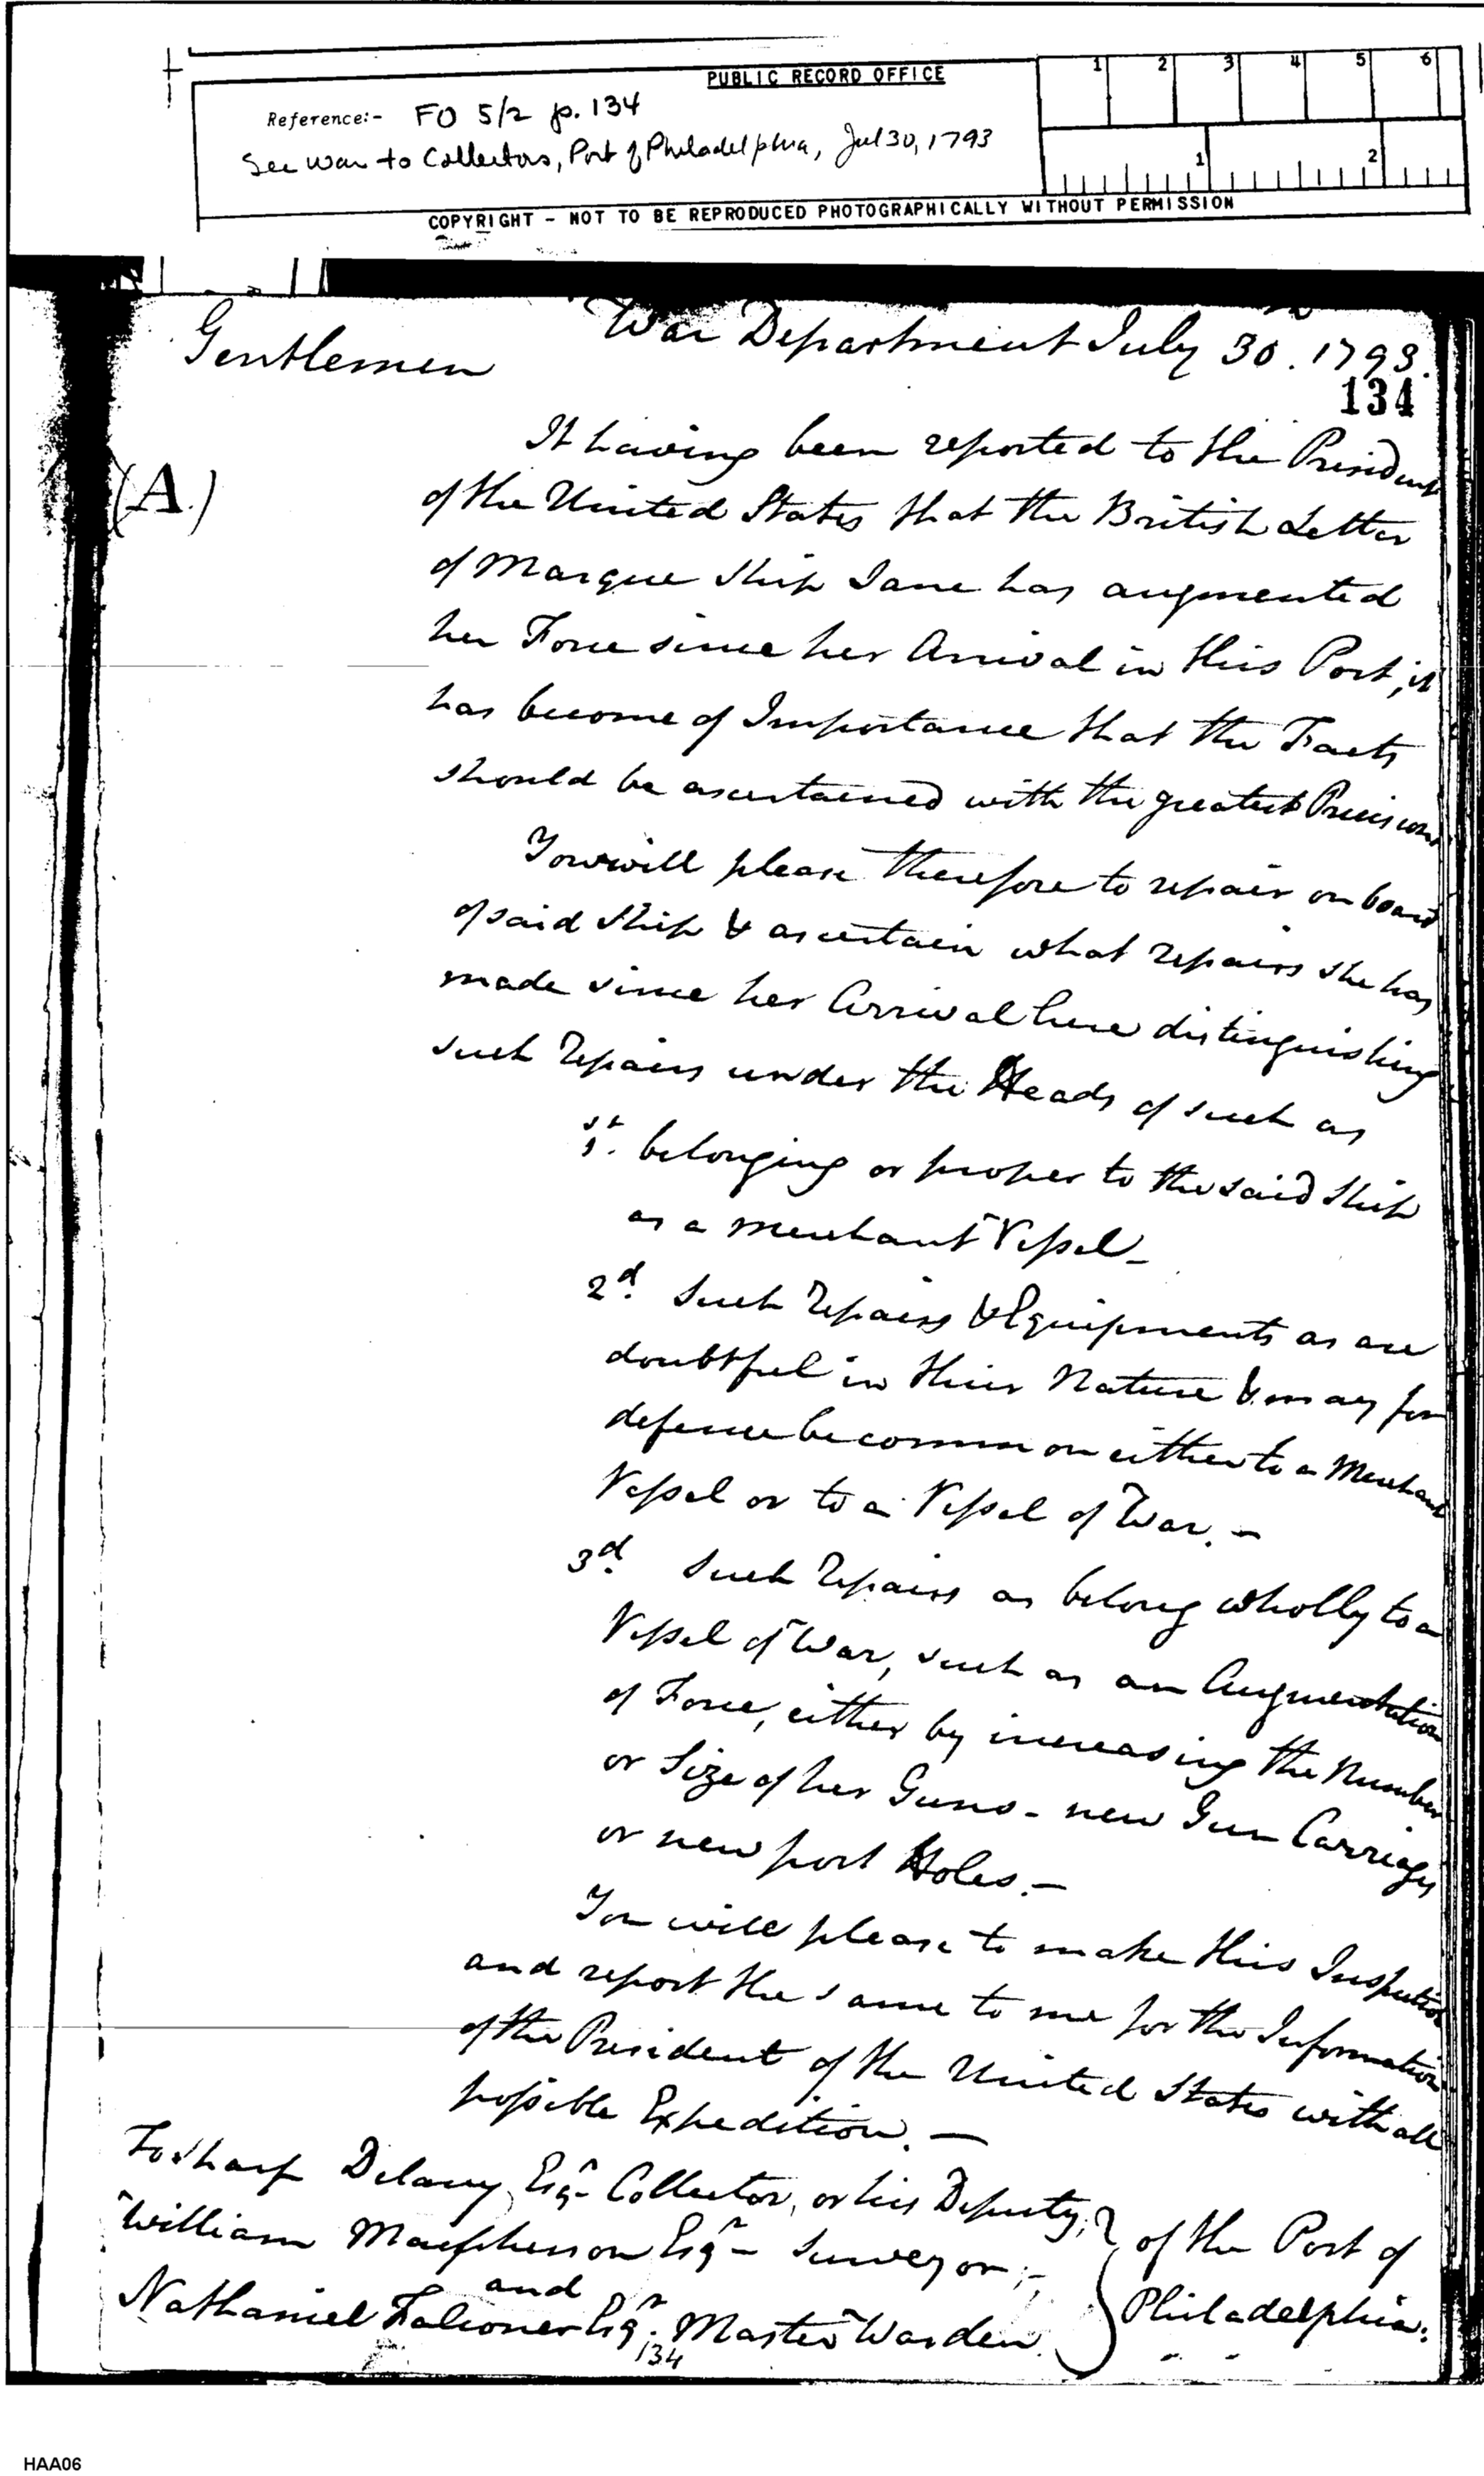 PUBLIC RECORD OFFICE
1 2 3 4 5 6
Reference:- FO 5/2 p. 134
See War to Collectors, Port of Philadelphia, Jul 30, 1793
1 2
COPYRIGHT - NOT TO BE REPRODUCED PHOTOGRAPHICALLY WITHOUT PERMISSION
War Department July 30th. 1793.
Gentlemen
134
It having been reported to the President
(A.)
of the United States that the British Letter
of Marque Ship Jane has augmented
her Force since her Arrival in this Port, it
has become of Importance that the Facts
should be ascertained with the greatest Precision
You will please therefore to repair on board
of said Ship & ascertain what repairs she has
made since her Arrival here distinguishing
such Repairs under the Heads of such as
1st. belonging or proper to the said Ship
as a merchant Vessel—
2d. Such Repairs & Equipments as are
doubtful in their Nature & may for
defence be common either to a Merchant
Vessel or to a Vessel of War.—
3d. Such Repairs as belong wholly to a
Vessel of War, such as an Augmentation
of Force, either by increasing the Number
or Size of her Guns - new Gun Carriages
or new port Holes.—
You will please to make this Inspection
and report the same to me for the Information
of the President of the United States with all
possible Expedition.—
To Sharp Delany, Esqr. Collector, or his Deputy;
William Macpherson Esqr. Surveyor;
of the Port of
and
Nathaniel Falconer Esqr. Master Warden
Philadelphia.
134
HAA06